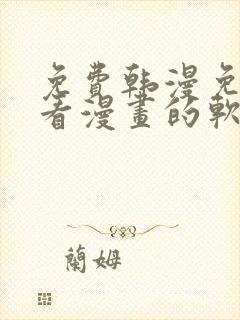 免費韩漫免
看漫畫的軟
蘭姆